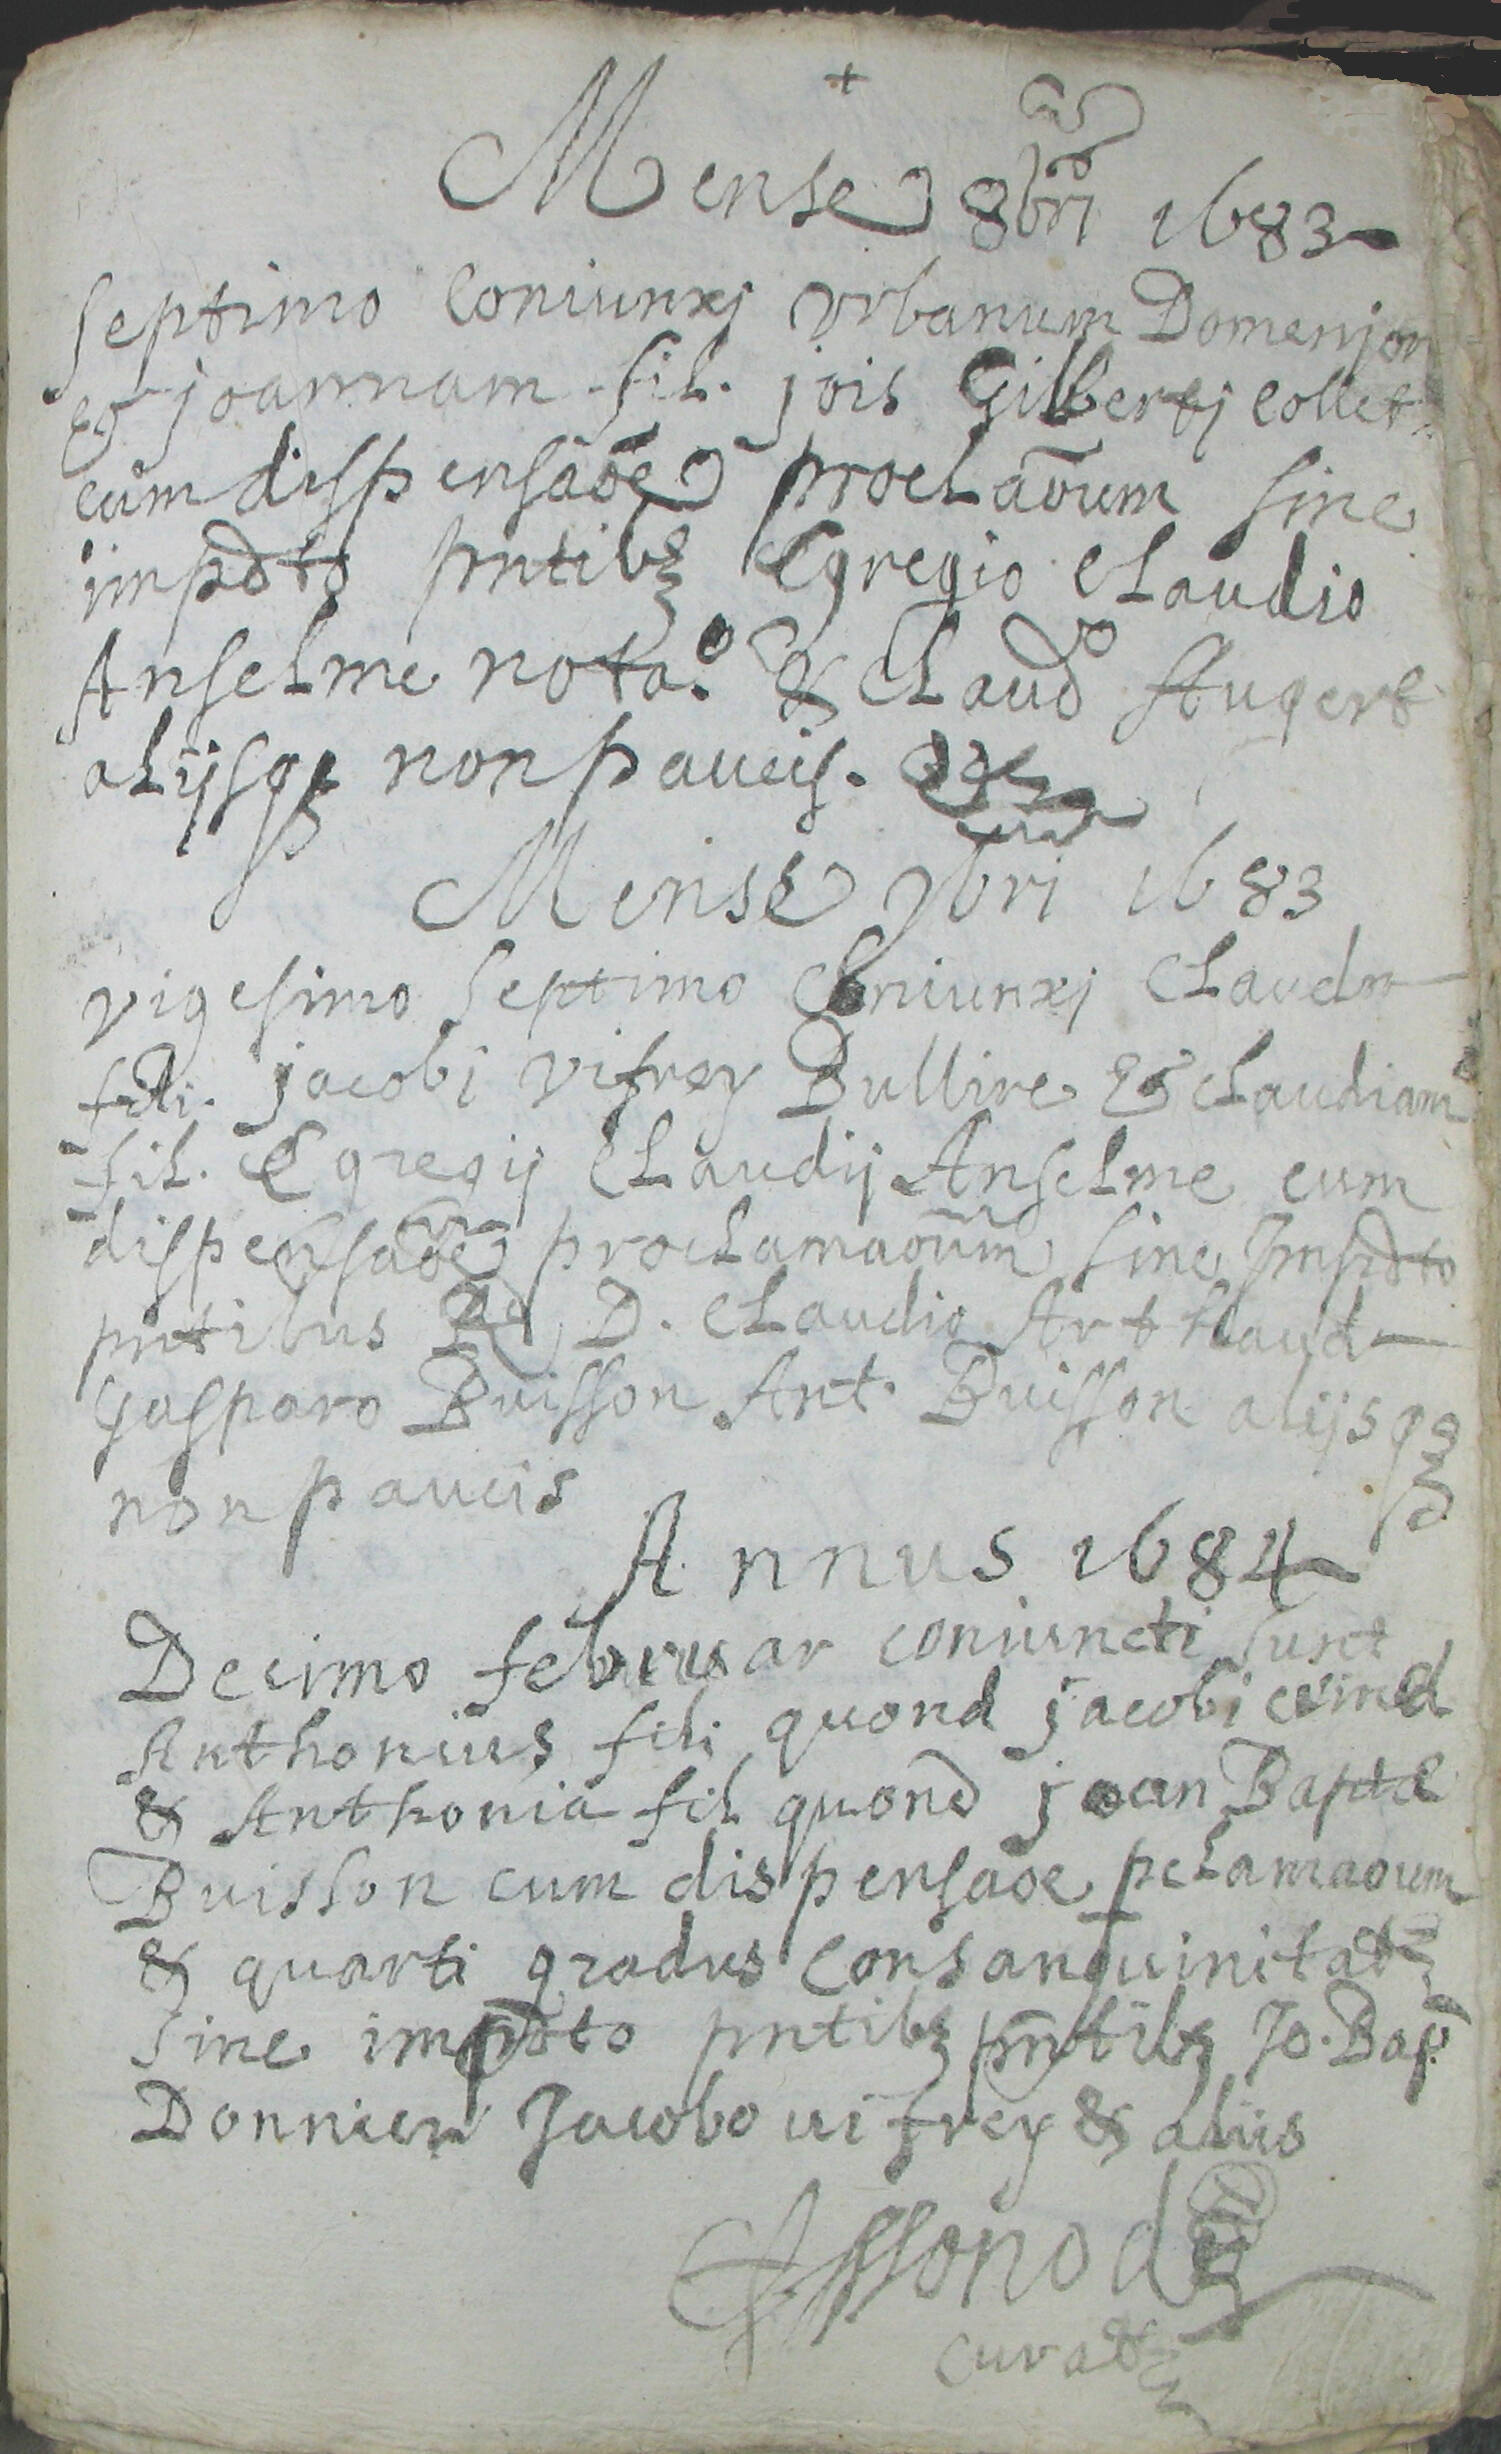 +
Mense 8bri 1683
septimo coniunxj vrbanum Domenjon
et joannam fil. jois Gilbertj collet
cum dispensaoe proclaoum sine
impdto pntibz Egregio Claudio
Anselme nota.o & Claudo Augert
alijsqz non paucis.
Mense 9bri 1683
vigesimo septimo coniunxj Claudm
fili. jacobi vifrey Bullire et claudiam
fil. Egregij Claudij Anselme cum
dispensaoe proclamaoum sine Impdto
pntibus Rd D. Claudio Arthaud
Gasparo Buisson Ant. Buisson alijsqz
non paucis
Annus 1684
Decimo februar coniuncti sunt
Anthonius fili quond jacobi
& Anthonia fil quond joan Baptae
Buisson cum dispensaoe pclamaoum
& quarti gradus consanguinitat
sine impdto pntibz pntibz Jo. Bap
Jacobo vifrey & aliis
curat